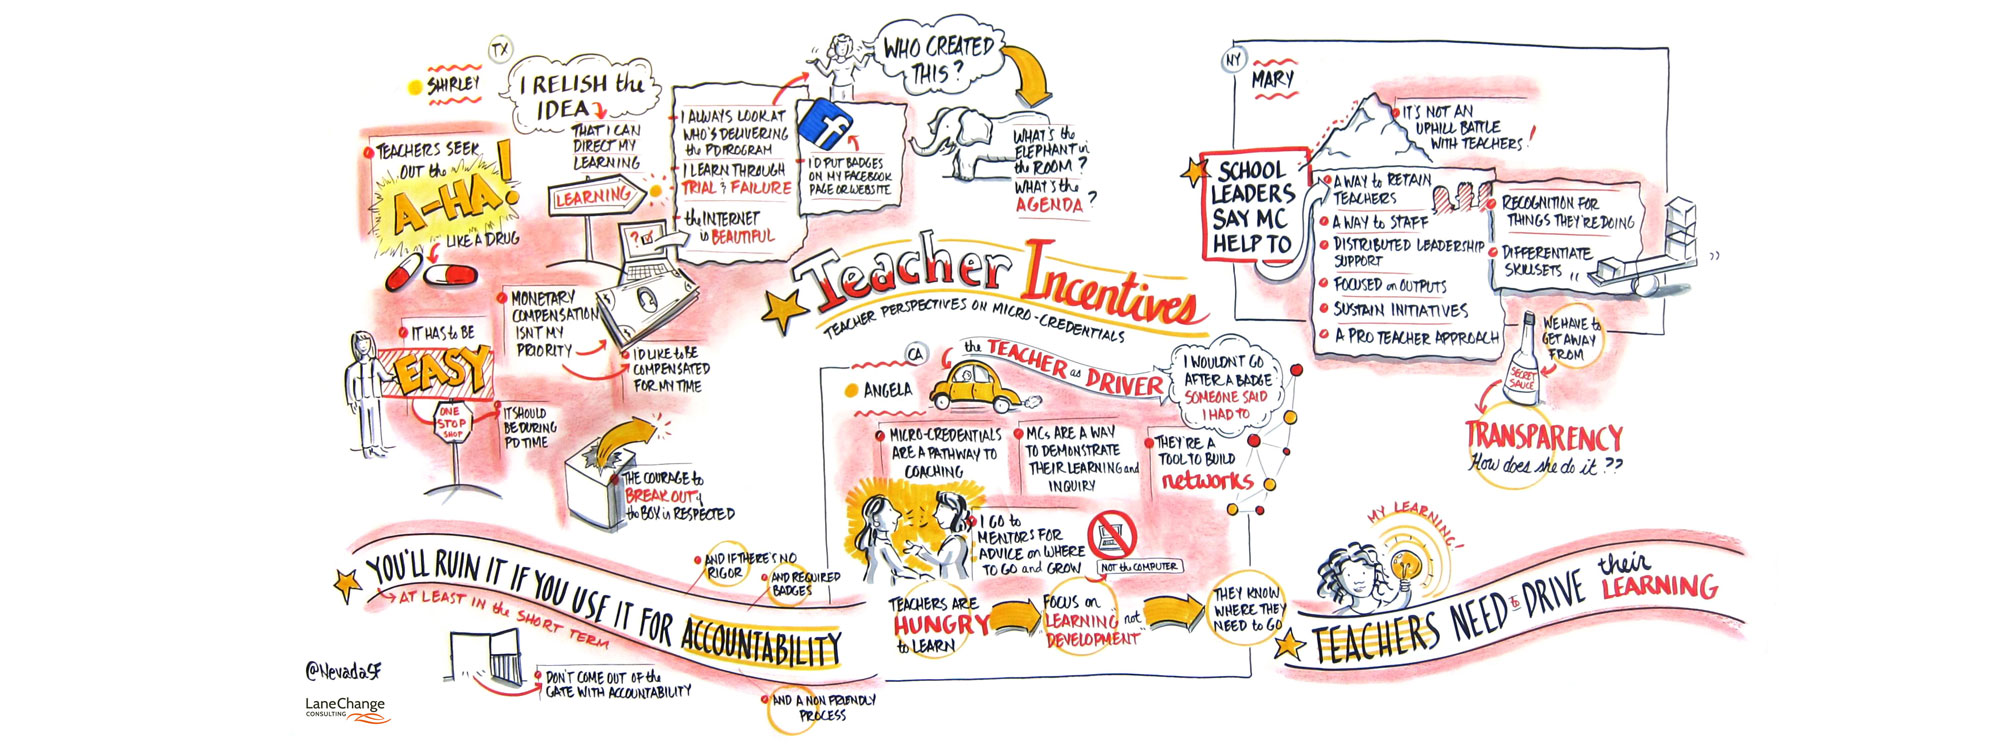 TX
SHIRLEY
I RELISH the
IDEA
THAT I CAN
DIRECT MY
LEARNING
TEACHERS SEEK
OUT the
A-HA!
LIKE A DRUG
LEARNING
?
I ALWAYS LOOK AT
WHO'S DELIVERING
the PD PROGRAM
I LEARN THROUGH
TRIAL & FAILURE
the INTERNET
is BEAUTIFUL
f
I'D PUT BADGES
ON MY FACEBOOK
PAGE OR WEBSITE
WHO CREATED
THIS?
WHAT'S the
ELEPHANT in
the ROOM?
WHAT'S the
AGENDA?
MONETARY
COMPENSATION
ISN'T MY
PRIORITY
I'D LIKE to BE
COMPENSATED
FOR MY TIME
IT HAS to BE
EASY
ONE
STOP
SHOP
IT SHOULD
BE DURING
PD TIME
THE COURAGE to
BREAK OUT of
the BOX is RESPECTED
Teacher Incentives
TEACHER PERSPECTIVES ON MICRO-CREDENTIALS
CA
ANGELA
the TEACHER as DRIVER
I WOULDN'T GO
AFTER A BADGE
SOMEONE SAID
I HAD TO
MICRO-CREDENTIALS
ARE A PATHWAY TO
COACHING
MCs ARE A WAY
TO DEMONSTRATE
THEIR LEARNING and
INQUIRY
THEY'RE A
TOOL TO BUILD
networks
I GO to
MENTORS FOR
ADVICE on WHERE
TO GO and GROW
NOT the COMPUTER
TEACHERS ARE
HUNGRY
to LEARN
FOCUS on
"LEARNING" not
"DEVELOPMENT"
THEY KNOW
WHERE THEY
NEED to GO
NY
MARY
IT'S NOT AN
UPHILL BATTLE
WITH TEACHERS!
SCHOOL
LEADERS
SAY MC
HELP TO
A WAY to RETAIN
TEACHERS
A WAY to STAFF
DISTRIBUTED LEADERSHIP
SUPPORT
FOCUSED on OUTPUTS
SUSTAIN INITIATIVES
A PRO TEACHER APPROACH
RECOGNITION FOR
THINGS THEY'RE DOING
DIFFERENTIATE
SKILLSETS
WE HAVE to
GET AWAY
FROM
SECRET
SAUCE
TRANSPARENCY
How does she do it??
MY LEARNING!
TEACHERS NEED to DRIVE their
LEARNING
YOU'LL RUIN IT IF YOU USE IT FOR ACCOUNTABILITY
AT LEAST IN the SHORT TERM
AND IF THERE'S NO
RIGOR
AND REQUIRED
BADGES
DON'T COME OUT OF the
GATE WITH ACCOUNTABILITY
AND A NON FRIENDLY
PROCESS
@NevadaSF
LaneChange
CONSULTING